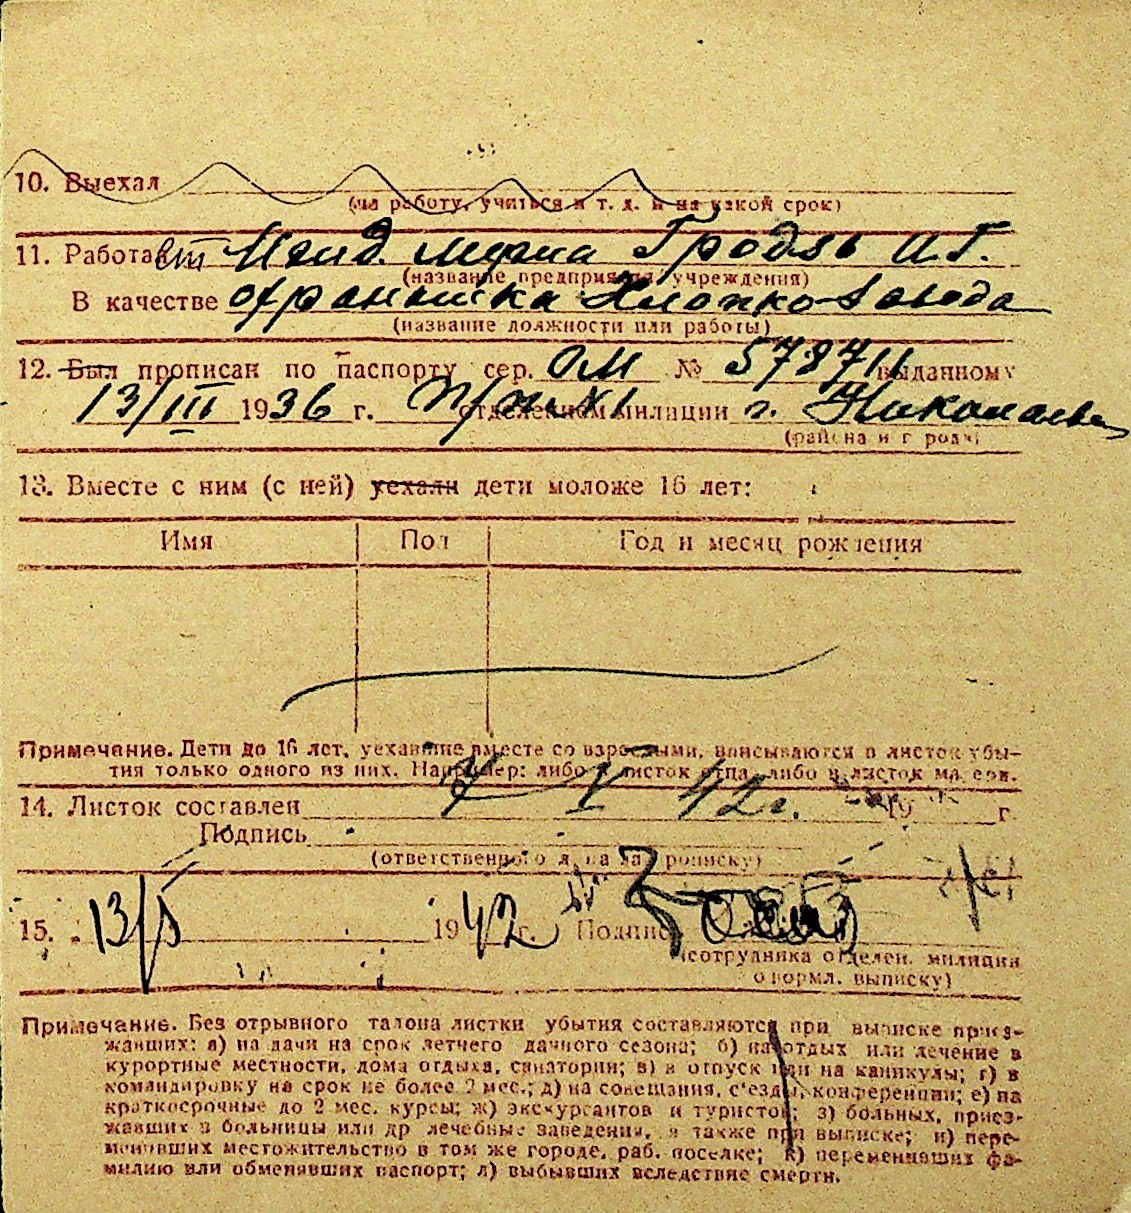 10. Выехал
(на работу, учиться и т. д. и на какой срок)
11. Работает
(название предприятия, учреждения)
В качестве охранника Хлопко-завода
(название должности или работы)
12. Был прописан по паспорту сер. ОМ № 578711 выданному
13/III 1936 г. отделением милиции г. Николаева
(района и города)
13. Вместе с ним (с ней) уехали дети моложе 16 лет:
Имя Пол Год и месяц рождения
Примечание. Дети до 16 лет, уехавшие вместе со взрослыми, вписываются в листок убы-
тия только одного из них. Например: либо в листок отца, либо в листок матери.
14. Листок составлен 7 V 42 г. 19 г.
Подпись
(ответственного лица за прописку)
15. 13/V 1942 г. Подпись
(сотрудника отделен. милиции
оформл. выписку)
Примечание. Без отрывного талона листки убытия составляются при выписке приез-
жавших: а) на дачи на срок летнего дачного сезона; б) на отдых или лечение в
курортные местности, дома отдыха, санатории; в) в отпуск или на каникулы; г) в
командировку на срок не более 2 мес.; д) на совещания, съезды, конференции; е) на
краткосрочные до 2 мес. курсы; ж) экскурсантов и туристов; з) больных, приез-
жавших в больницы или др лечебные заведения, а также при выписке; и) пере-
менивших местожительство в том же городе, раб. поселке; к) переменивших фа-
милию или обменявших паспорт; л) выбывших вследствие смерти.